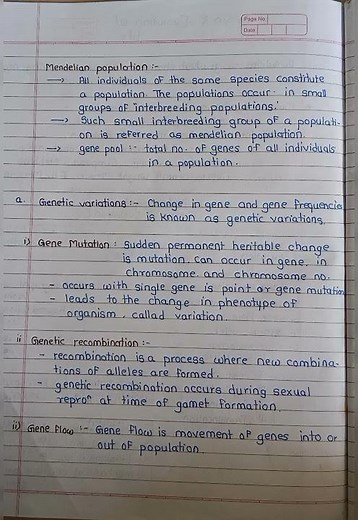 Page No.
Date
Mendelian population :-
→ All individuals of the same species constitute
a population. The populations occur in small
groups of interbreeding populations.
→ Such small interbreeding group of a populati-
on is referred as mendelian population.
→ gene pool :- total no. of genes of all individuals
in a population.
a. Genetic variations :- Change in gene and gene frequencies
is known as genetic variations.
i) Gene Mutation : Sudden permanent heritable change
is mutation. can occur in gene, in
chromosome. and chromosome no.
- occurs with single gene is point or gene mutation
- leads to the change in phenotype of
organism . callad variation.
ii Genetic recombination :-
- recombination is a process where new combina-
tions of alleles are formed.
- genetic recombination occurs during sexual
reproⁿ at time of gamet formation.
ii) Gene flow :- Gene flow is movement of genes into or
out of population.